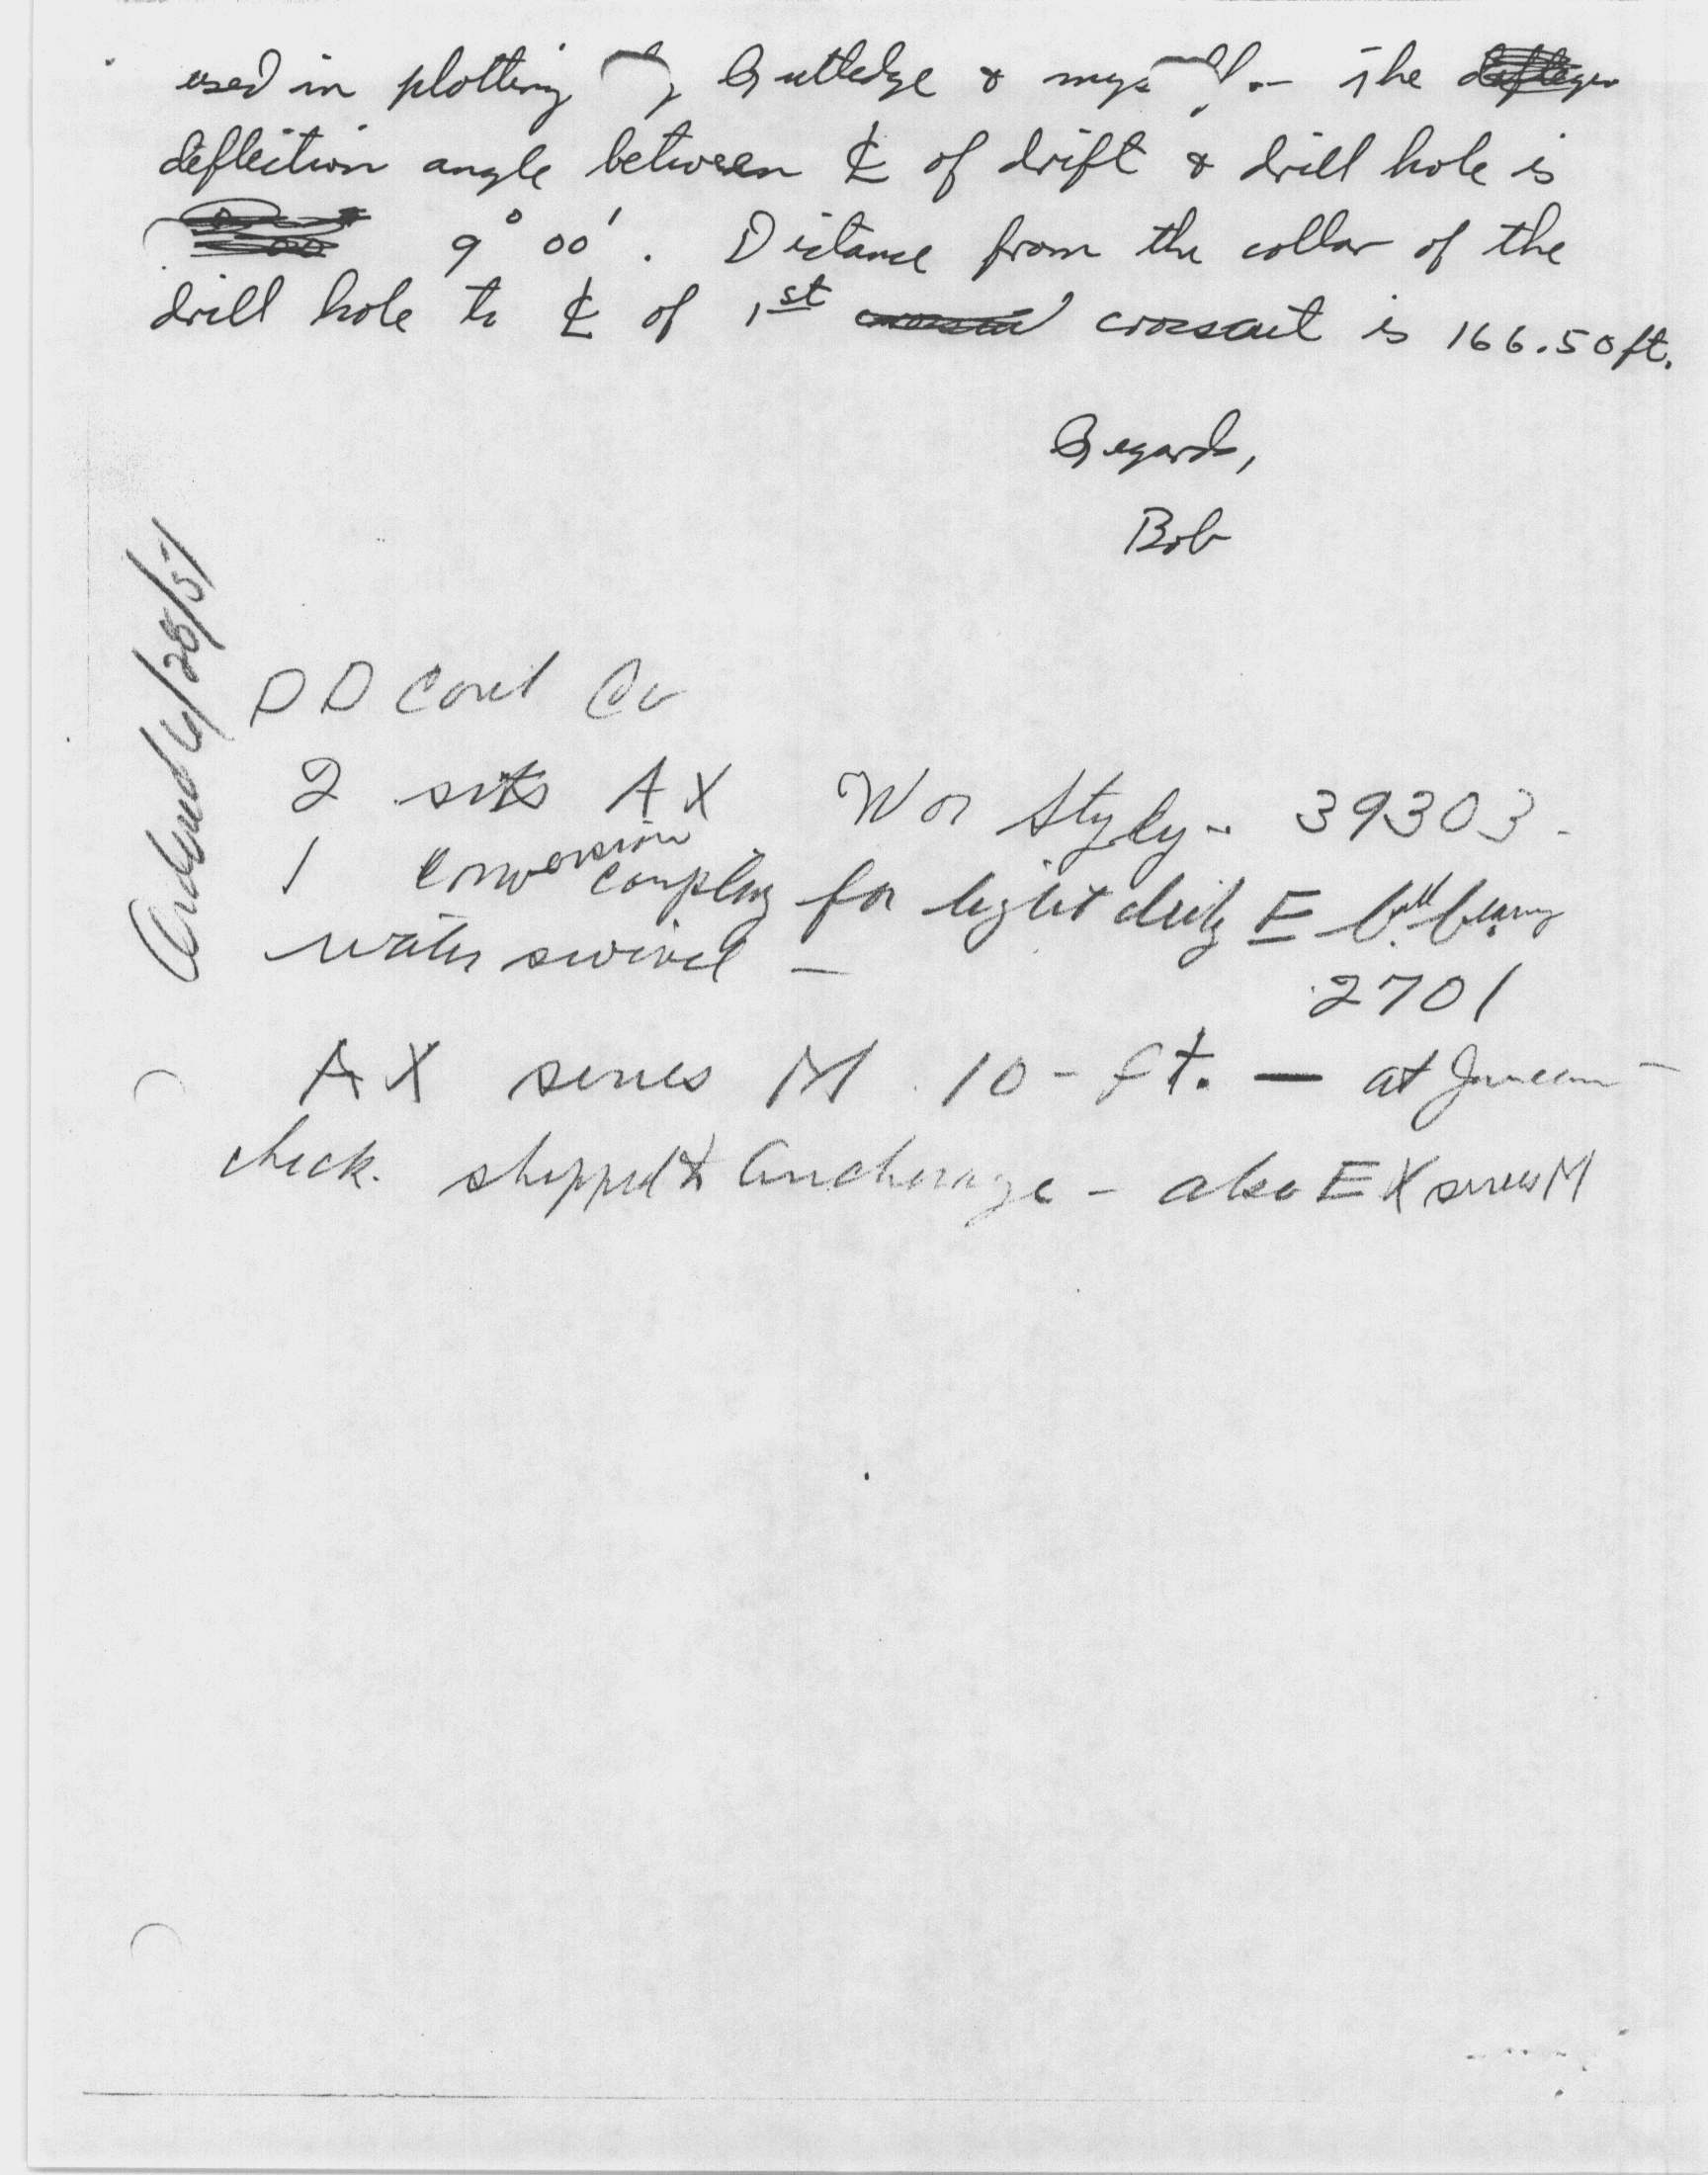 used in plotting by Rutledge & myself. – The
deflection angle between ℄ of drift & drill hole is
9° 00'. Distance from the collar of the
drill hole to ℄ of 1st crosscut is 166.50 ft.
Regards,
Bob
Ordered 6/28/51
D D Co
2 sets AX Style - 39303 -
1 conversion coupling for light duty E ball bearing
water swivel –
2701
AX series M 10-ft. — at Juneau –
check. shipped to Anchorage – also EX series M